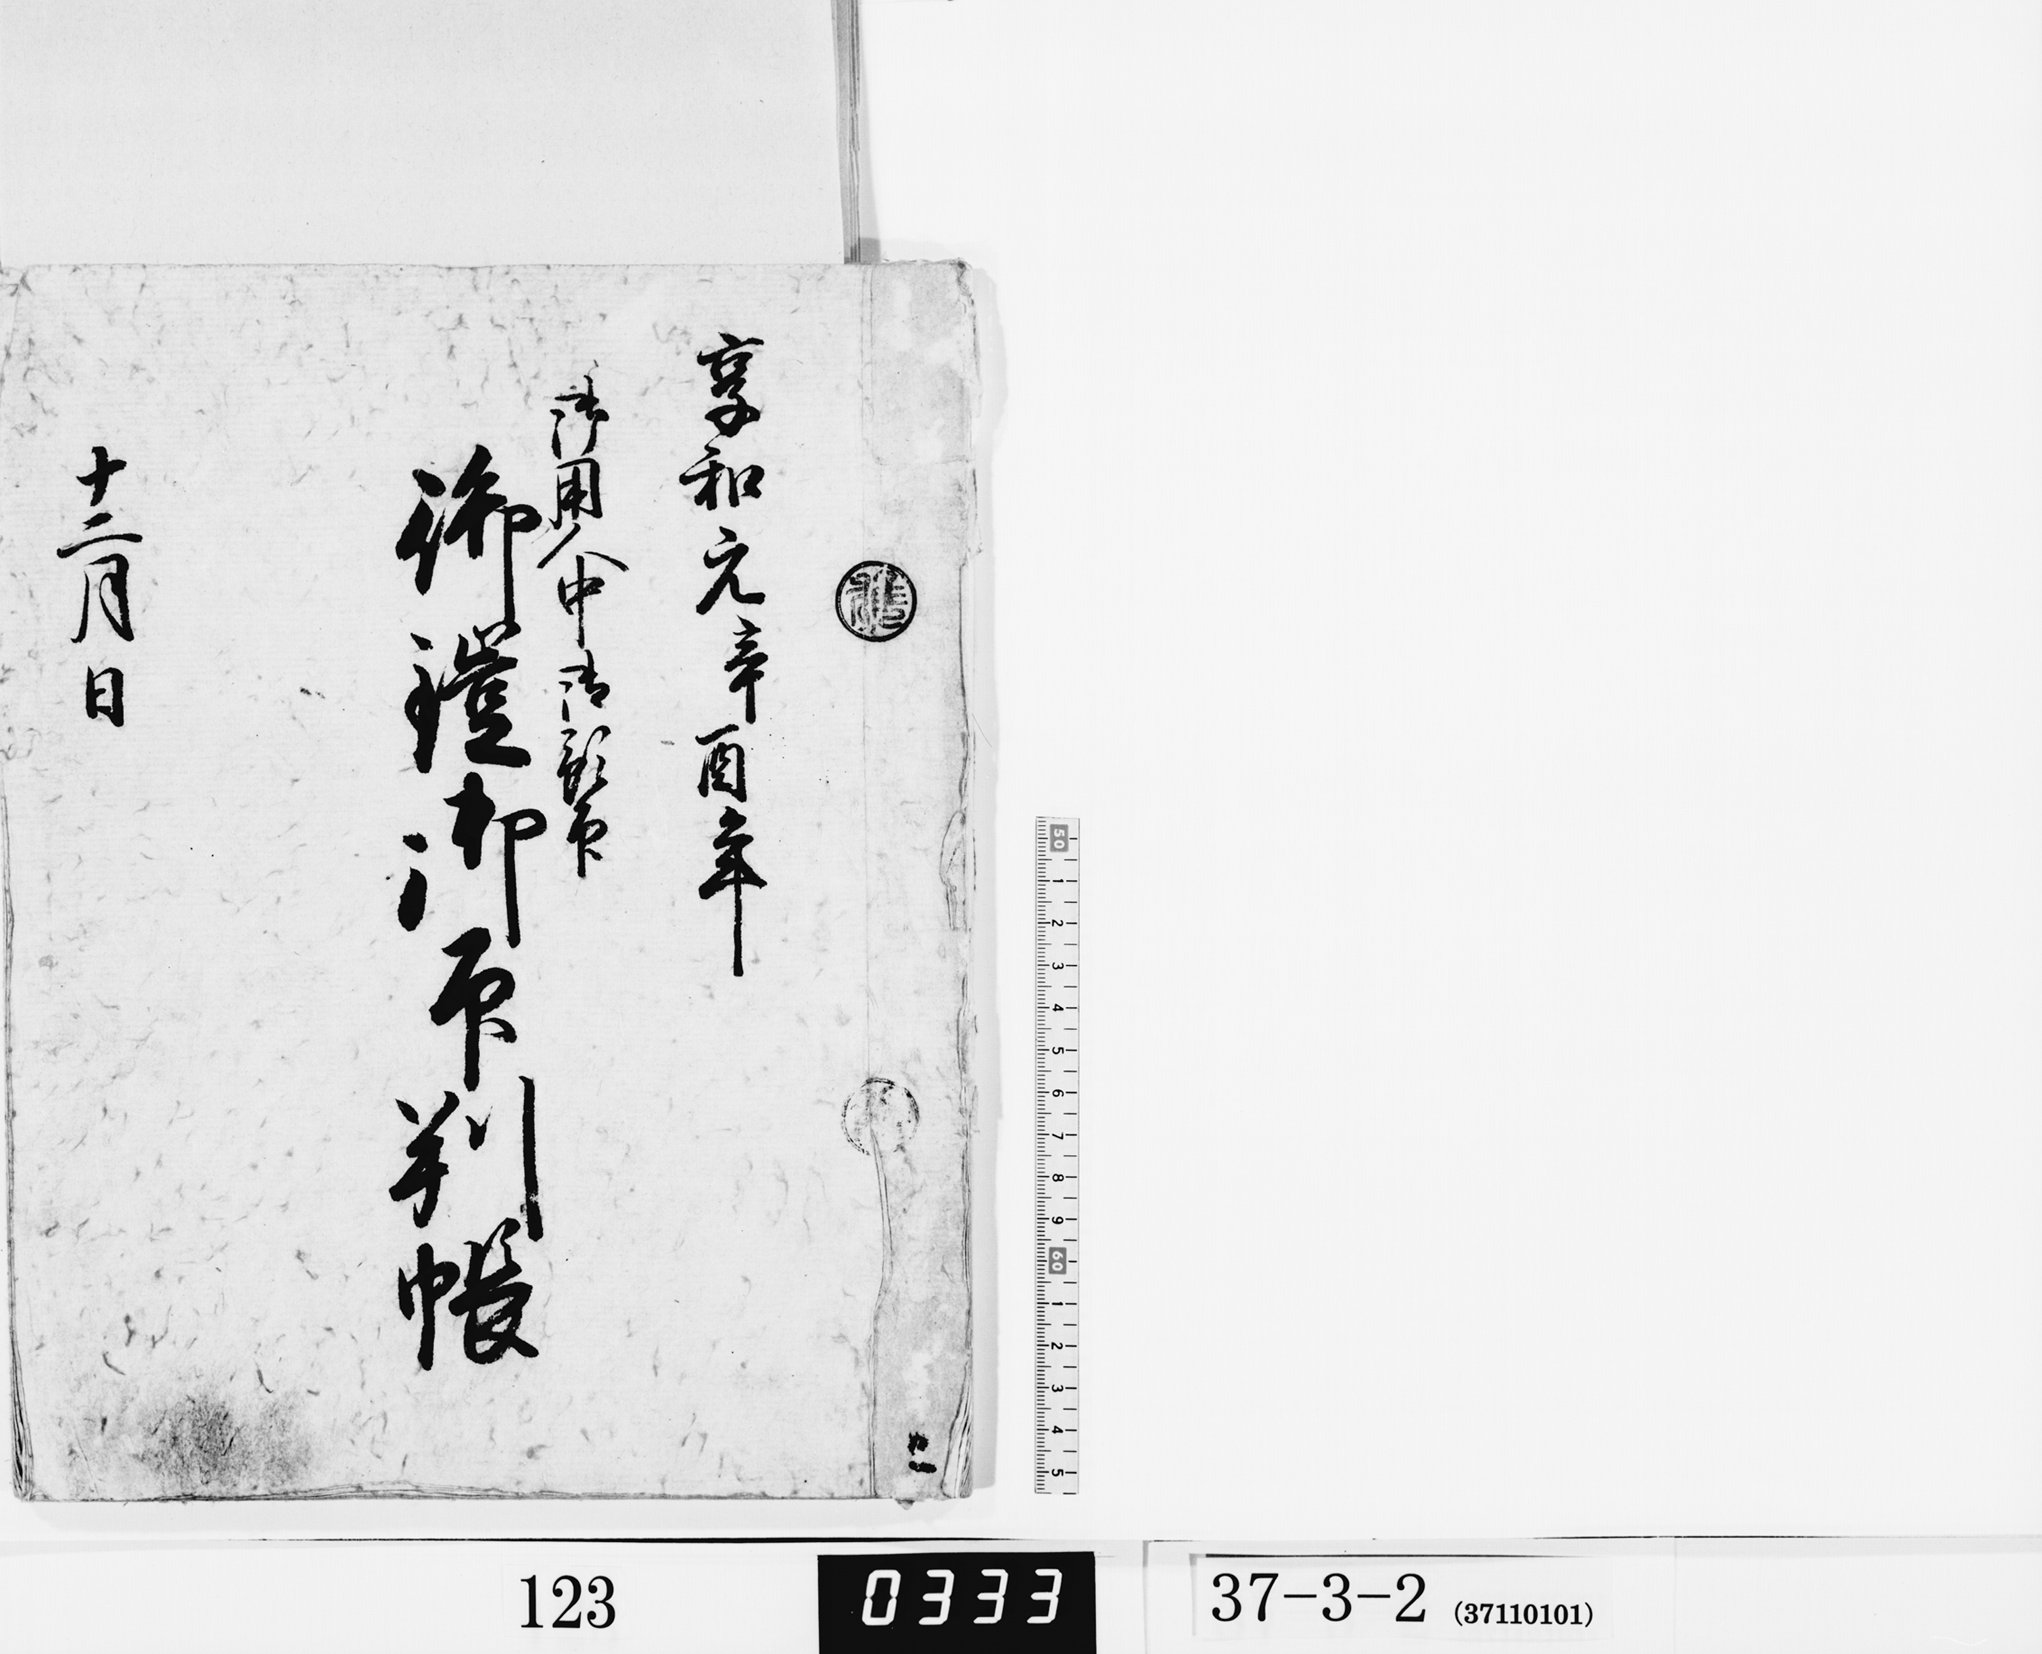 享和元辛酉年
御用人中御預印
御鎧御印判帳
十二月日
50
1
2
3
4
5
6
7
8
9
60
1
2
3
4
5
123
0333
37-3-2 (37110101)